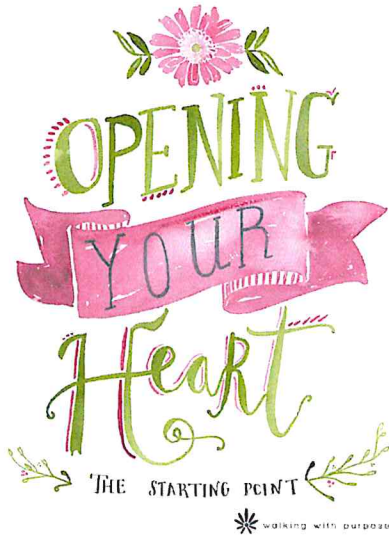 OPENING
YOUR
Heart
THE STARTING POINT
walking with purpose